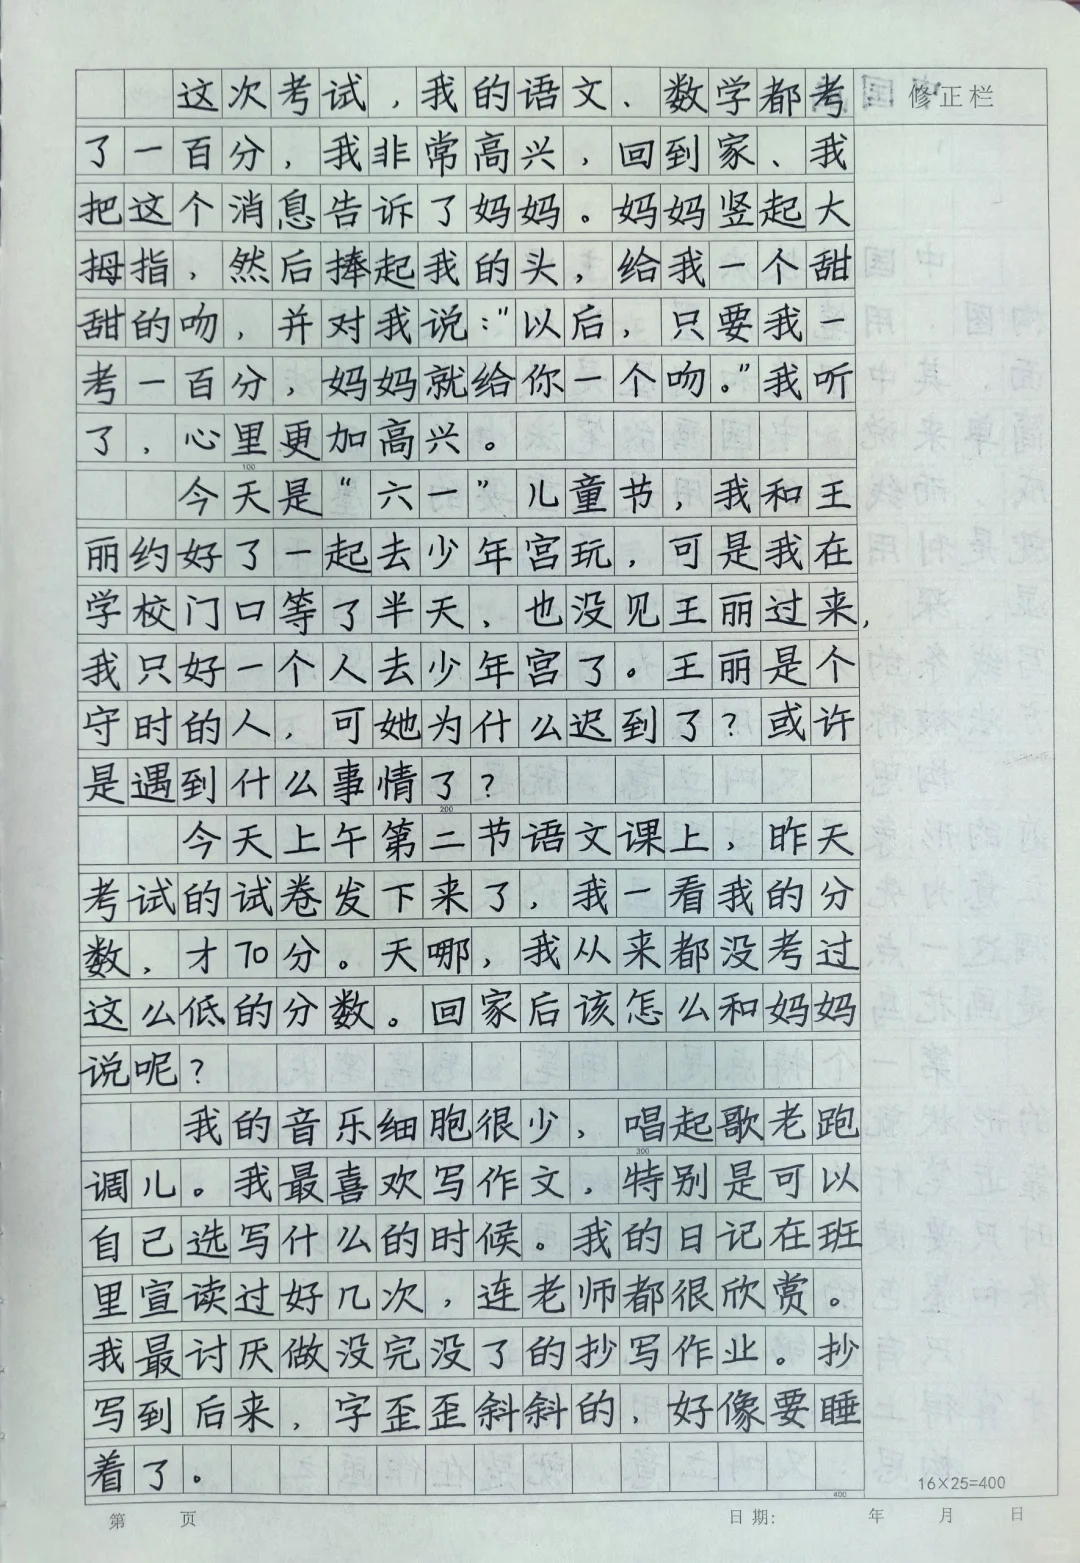 这次考试，我的语文、数学都考
修正栏
了一百分，我非常高兴，回到家、我
把这个消息告诉了妈妈。妈妈竖起大
拇指，然后捧起我的头，给我一个甜
甜的吻，并对我说："以后，只要我一
考一百分，妈妈就给你一个吻。"我听
了，心里更加高兴。
100
今天是"六一"儿童节，我和王
丽约好了一起去少年宫玩，可是我在
学校门口等了半天、也没见王丽过来，
我只好一个人去少年宫了。王丽是个
守时的人，可她为什么迟到了？或许
是遇到什么事情了？
200
今天上午第二节语文课上，昨天
考试的试卷发下来了，我一看我的分
数，才70分。天哪，我从来都没考过
这么低的分数。回家后该怎么和妈妈
说呢？
我的音乐细胞很少，唱起歌老跑
300
调儿。我最喜欢写作文，特别是可以
自己选写什么的时候。我的日记在班
里宣读过好几次，连老师都很欣赏。
我最讨厌做没完没了的抄写作业。抄
写到后来，字歪歪斜斜的，好像要睡
着了。
16×25=400
400
第 页 日期: 年 月 日